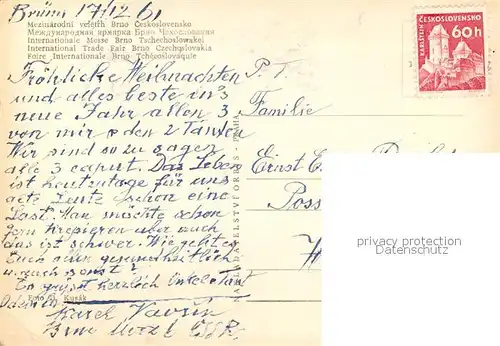 Brünn 17/12 61
Mezinárodní veletrh Brno Československo
Международная ярмарка Брно Чехословакия
Internationale Messe Brno Tschechoslowakei
International Trade Fair Brno Czechoslovakia
Foire Internationale Brno Tchécoslovaquie
ČESKOSLOVENSKO
KARLŠTEJN
60h
Fröhliche Weihnachten
und alles beste ins
neue Jahr allen 3
von mir u den 2 Tanten
Wir sind so zu sagen
alle 3 caput. Das Leben
ist heutzutage für uns
alte Leute schon eine
Last. Man möchte schon
gern krepieren aber auch
das ist schwer. Wie geht es
Euch aber gesundheitlich
u. auch sonst?
Es grüsst herzlich
Foto Kusák
Karel
Brno ČSSR
P. T.
Familie
Ernst
privacy protection
Datenschutz